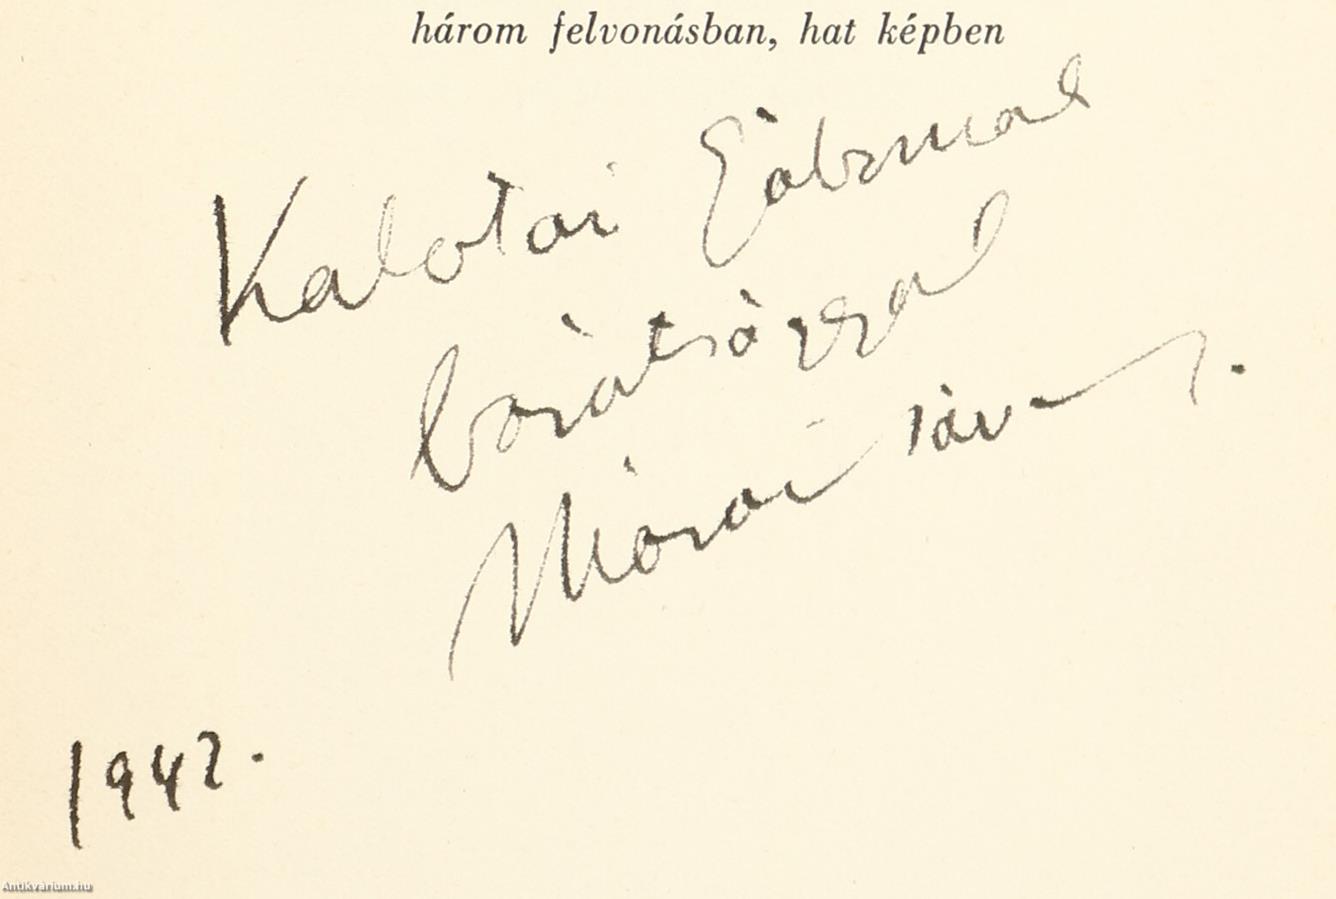 három felvonásban, hat képben
Kalotai Gábornak
barátsággal
Márai Sándor.
1942.
Antikvárium.hu